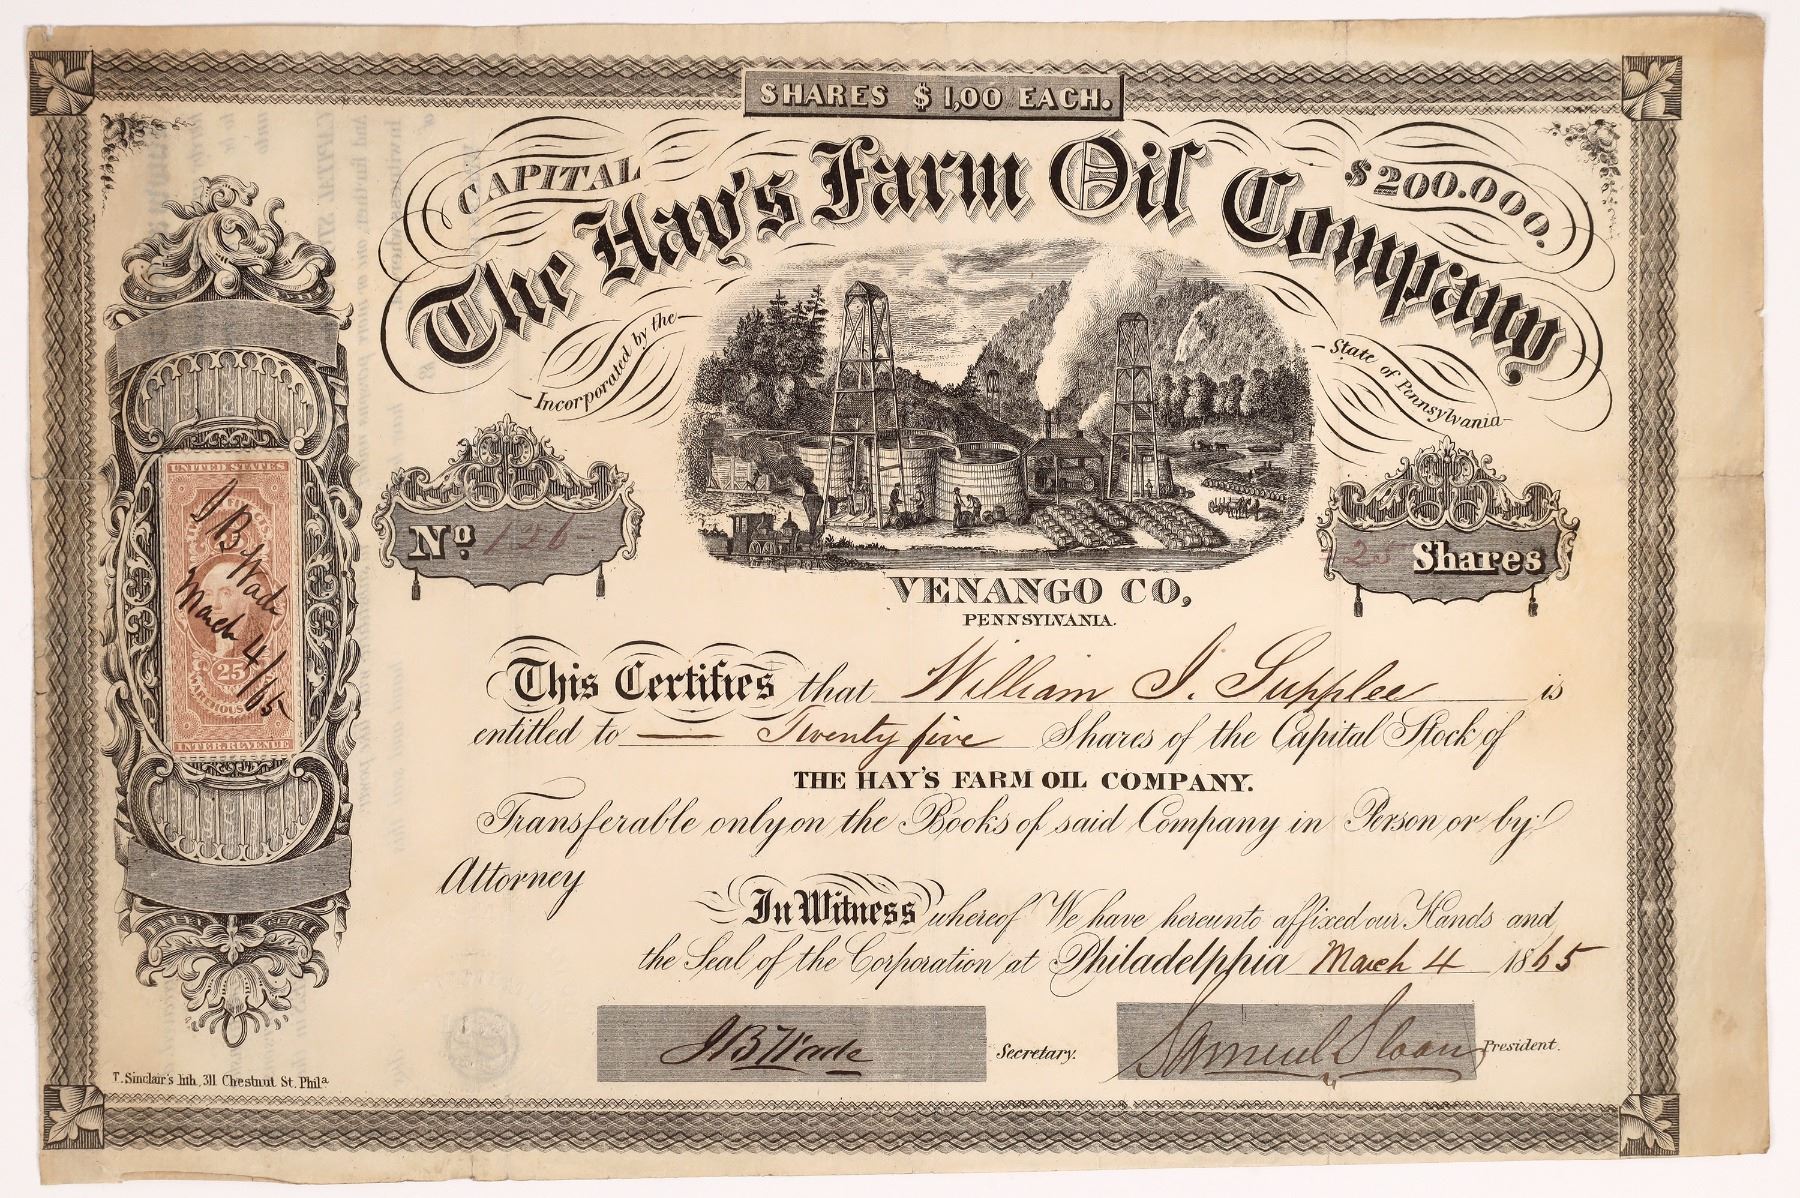 SHARES $1,00 EACH.
CAPITAL $200.000.
The Hay's Farm Oil Company
Incorporated by the State of Pennsylvania
No. 126
25 Shares
VENANGO CO,
PENNSYLVANIA.
UNITED STATES
J B Wade
March 4/65
25
WAREHOUSE
INTER. REVENUE
This Certifies that William J. Supplee is
entitled to Twenty five Shares of the Capital Stock of
THE HAY'S FARM OIL COMPANY.
Transferable only on the Books of said Company in Person or by
Attorney
In Witness whereof We have hereunto affixed our Hands and
the Seal of the Corporation at Philadelphia March 4 1865
J B Wade Secretary.
Samuel Sloan President.
T. Sinclair's lith, 311 Chestnut St. Phila